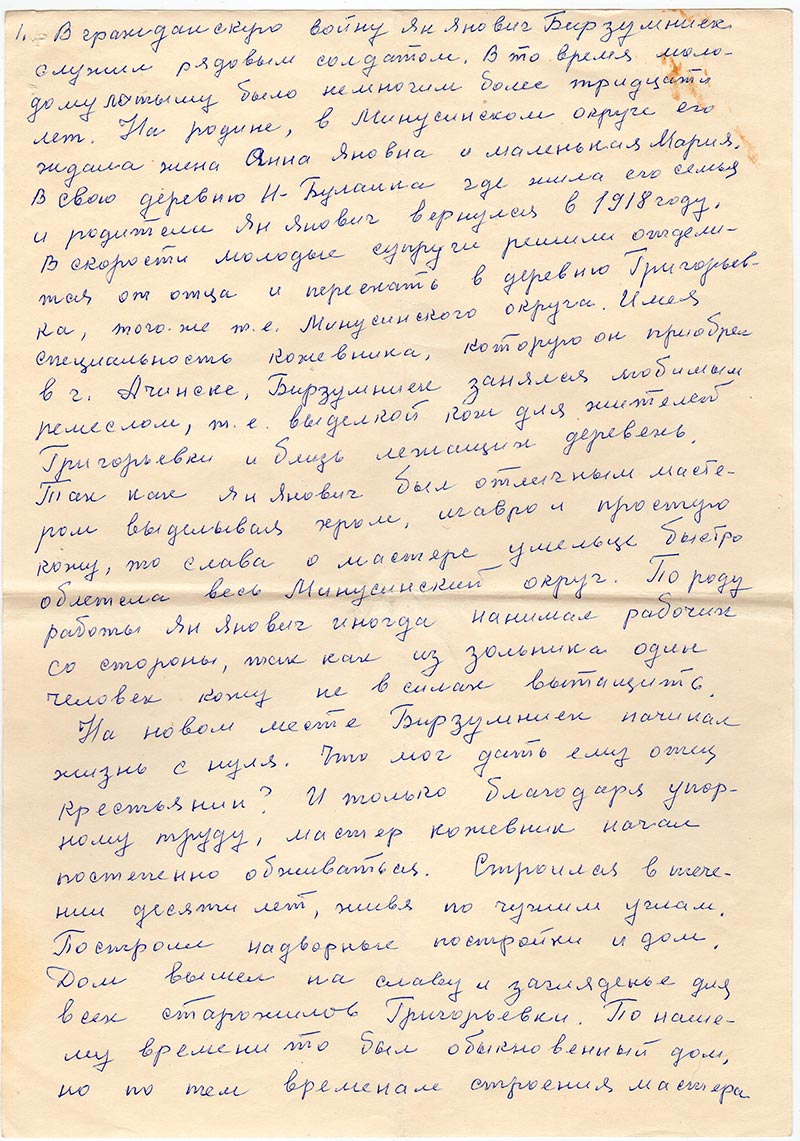 1. В гражданскую войну Ян Янович Бирзумниек
служил рядовым солдатом. В то время моло-
дому латышу было немногим более тридцати
лет. На родине, в Минусинском округе его
ждала жена Анна Яновна и маленькая Мария.
В свою деревню Н-Буланка где жила его семья
и родители Ян Янович вернулся в 1918 году.
В скорости молодые супруги решили отдели-
тся от отца и переехать в деревню Григорьев-
ка, того-же т.е. Минусинского округа. Имея
специальность кожевника, которую он приобрел
в г. Ачинске, Бирзумниек занялся любимым
ремеслом, т.е. выделкой кож для жителей
Григорьевки и близь лежащих деревень.
Так как Ян Янович был отличным масте-
ром выделывая хром, и простую
кожу, то слава о мастере умельце быстро
облетела весь Минусинский округ. По роду
работы Ян Янович иногда нанимал рабочих
со стороны, так как из зольника один
человек кожу не в силах вытащить.
На новом месте Бирзумниек начинал
жизнь с нуля. Что мог дать ему отец
крестьянин? И только благодаря упор-
ному труду, мастер кожевник начал
постепенно обживаться. Строился в тече-
нии десяти лет, живя по чужим углам.
Построил надворные постройки и дом.
Дом вышел на славу и загляденье для
всех старожилов Григорьевки. По наше-
му времени то был обыкновенный дом,
но по тем временам строения мастера